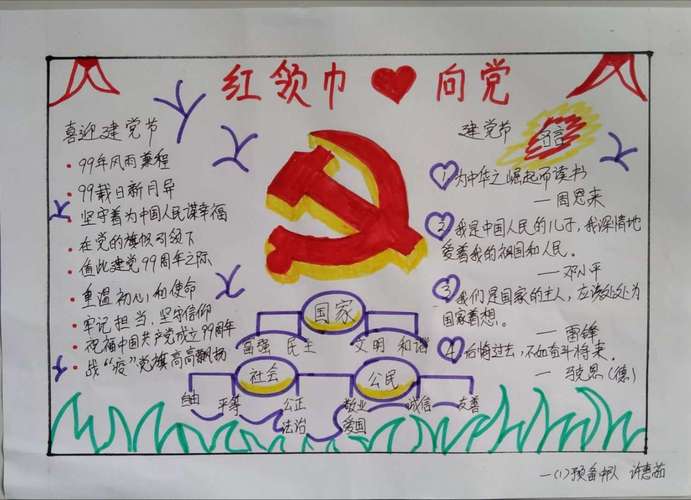 红领巾 向党
喜迎建党节
99年风雨兼程
99载日新月异
坚守着为中国人民谋幸福
在党的旗帜引领下
值此建党99周年之际
重温初心和使命
牢记担当、坚守信仰
祝福中国共产党成立99周年
战“疫”党旗高高飘扬
建党节 名言
1 为中华之崛起而读书
—周恩来
2 我是中国人民的儿子,我深情地
爱着我的祖国和人民。
—邓小平
3 我们是国家的主人,应该处处为
国家着想。
—雷锋
4 后悔过去,不如奋斗将来。
—马克思(德)
国家
富强 民主 文明 和谐
社会 公民
自由 平等 公正 敬业 诚信 友善
法治 爱国
一(1)预备中队 许惠茹